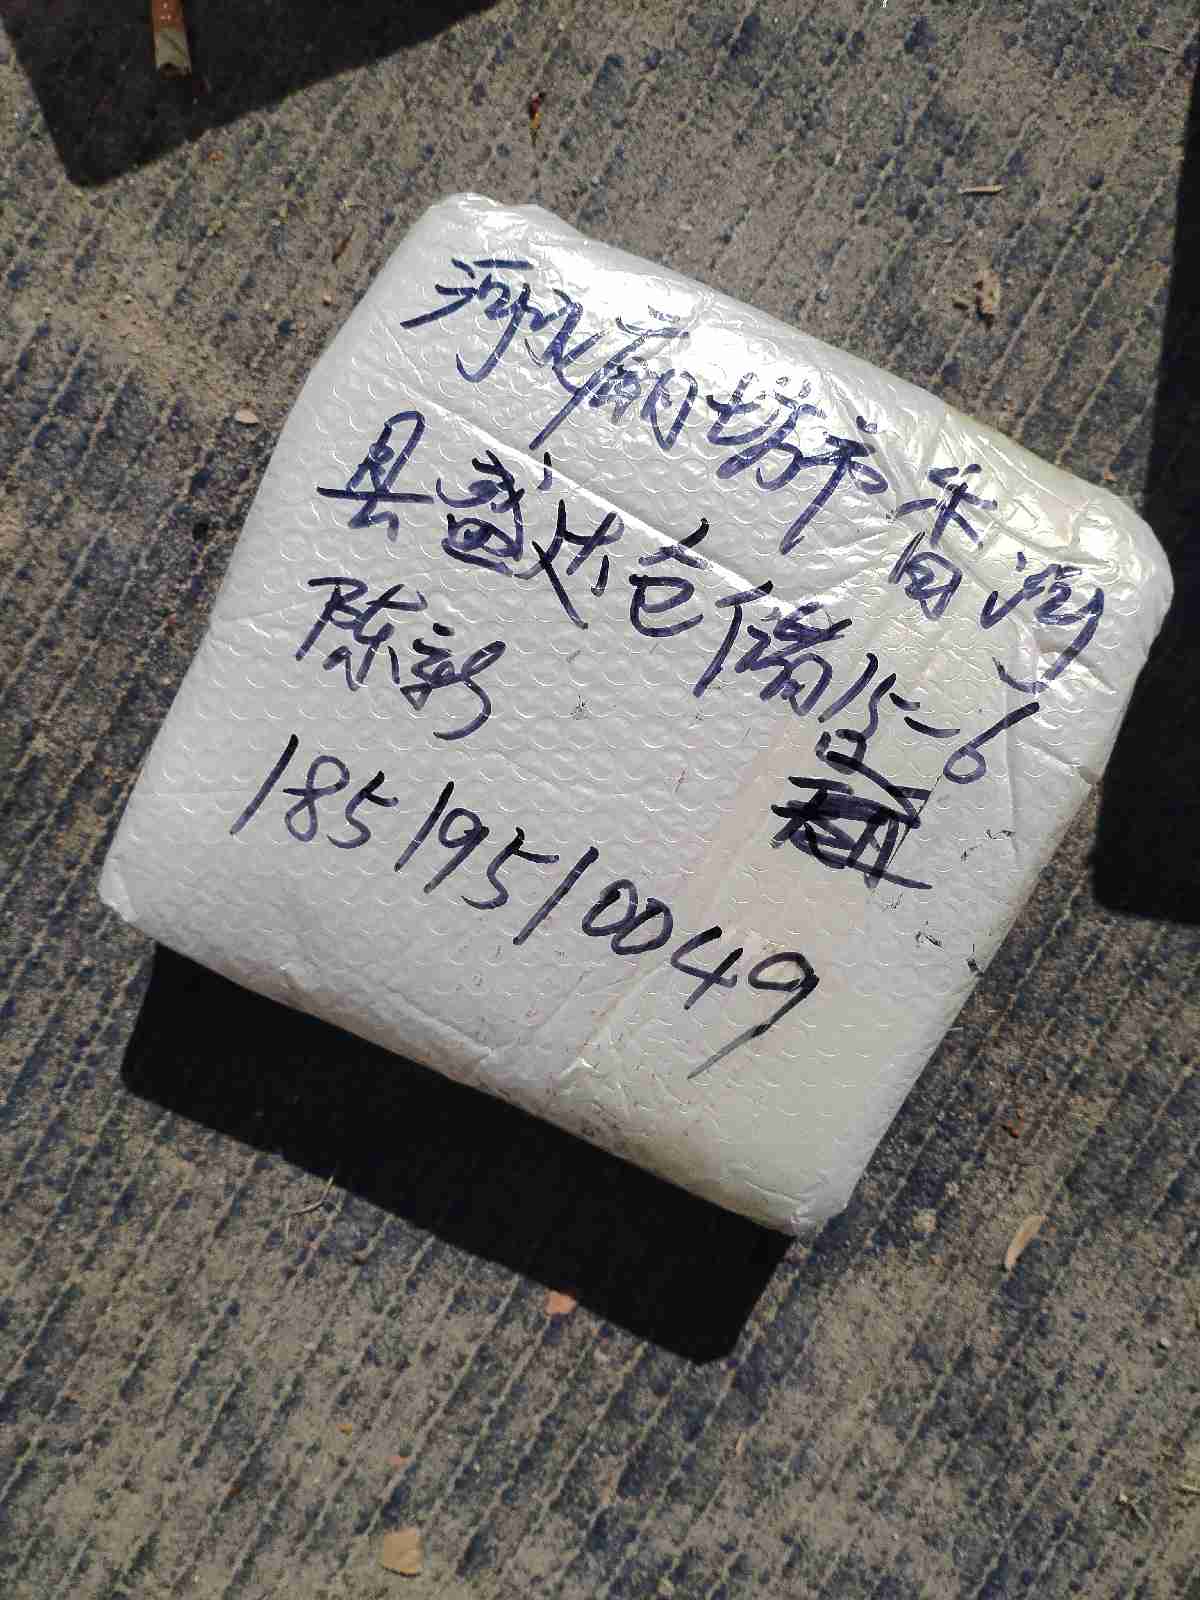 河北廊坊市香河
县盛达仓储15-6
区
陈新
18519510049